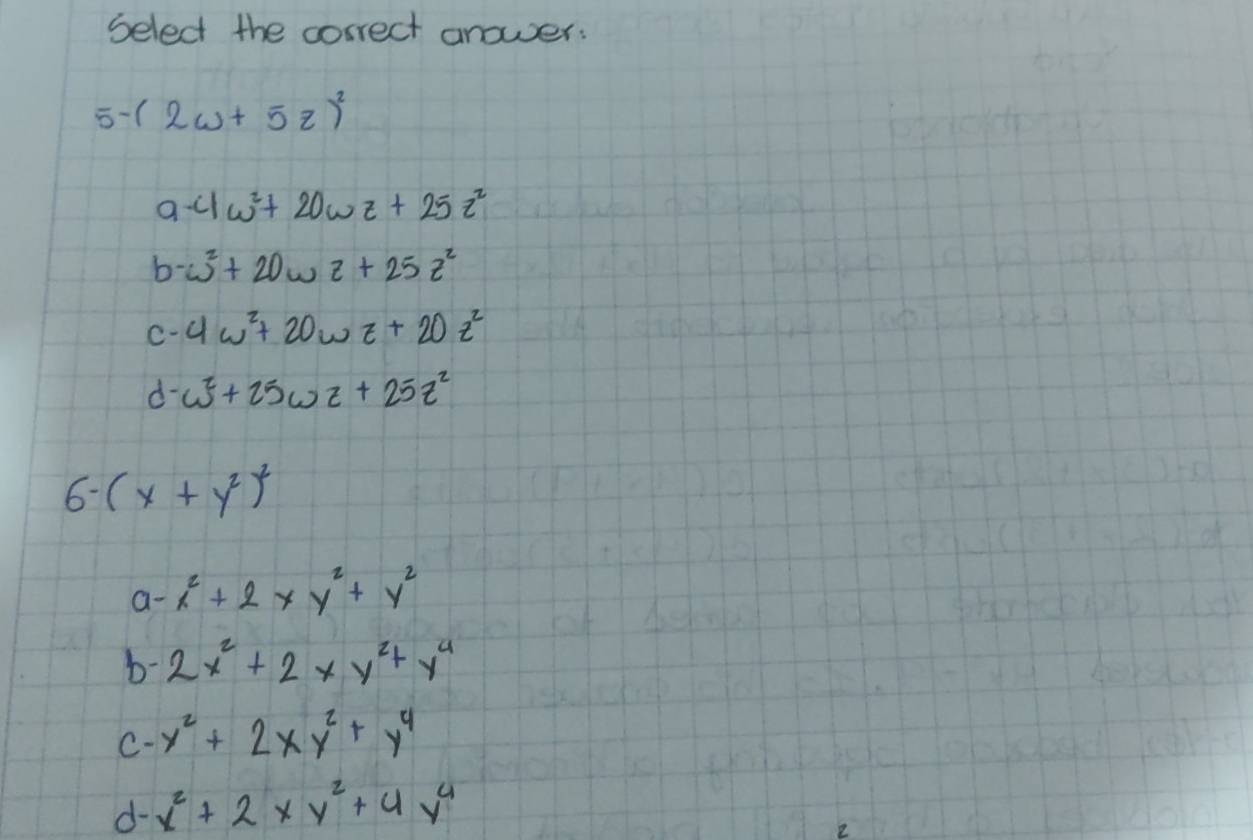 Select the correct answer:
5-(2w + 5z)²
a-4w² + 20wz + 25z²
b-w² + 20wz + 25z²
c-4w² + 20wz + 20z²
d-w² + 25wz + 25z²
6-(x + y²)²
a-x² + 2xy² + y²
b-2x² + 2xy² + y⁴
c-x² + 2xy² + y⁴
d-x² + 2xy² + 4y⁴
2